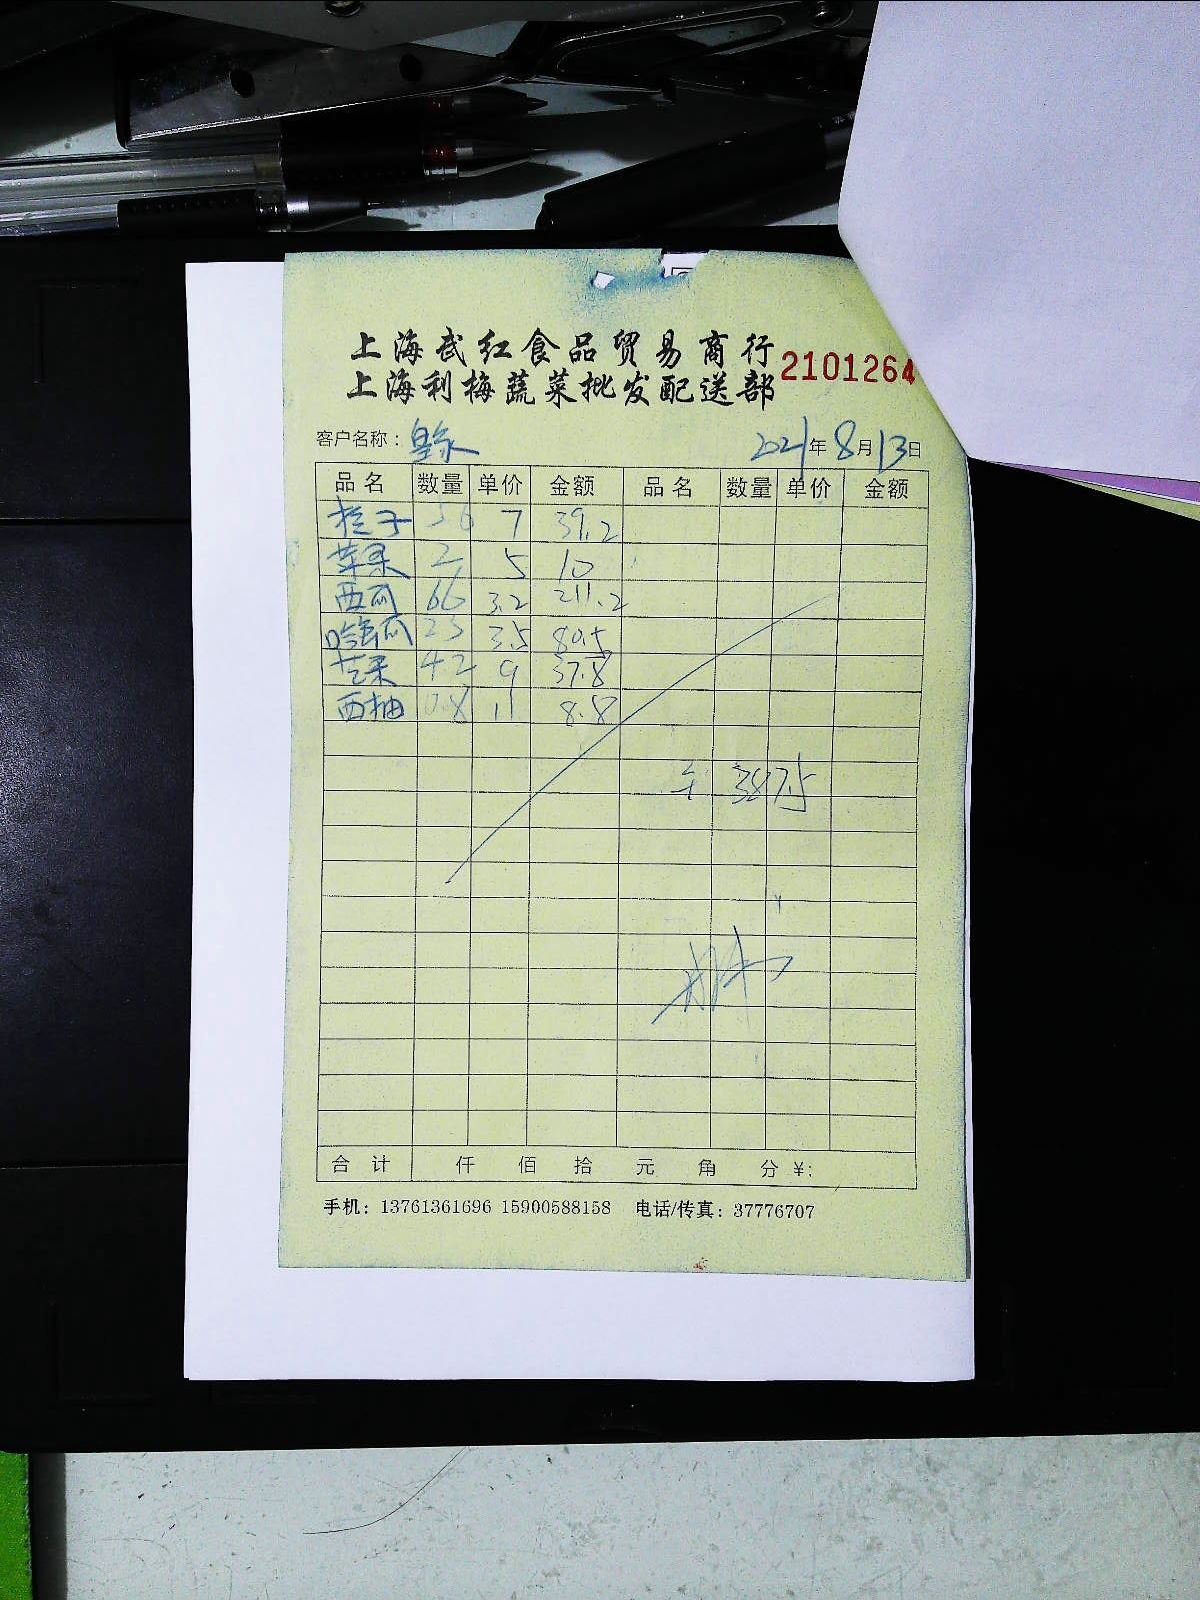 上海武红食品贸易商行
上海利梅蔬菜批发配送部 2101264
客户名称: 2021年8月13日
品名 数量 单价 金额 品名 数量 单价 金额
橙子 56 7 39.2
苹果 2 5 10
西瓜 66 3.2 211.2
哈密瓜 23 3.5 80.5
芒果 42 9 37.8
西柚 0.8 11 8.8
387.5
合计 仟 佰 拾 元 角 分 ¥:
手机: 13761361696 15900588158 电话/传真: 37776707